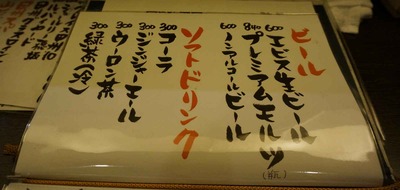 ビール
600 エビス生ビール
840 プレミアムモルツ(瓶)
600 ノンアルコールビール
ソフトドリンク
300 コーラ
300 ジンジャーエール
300 ウーロン茶
300 緑茶(冷)